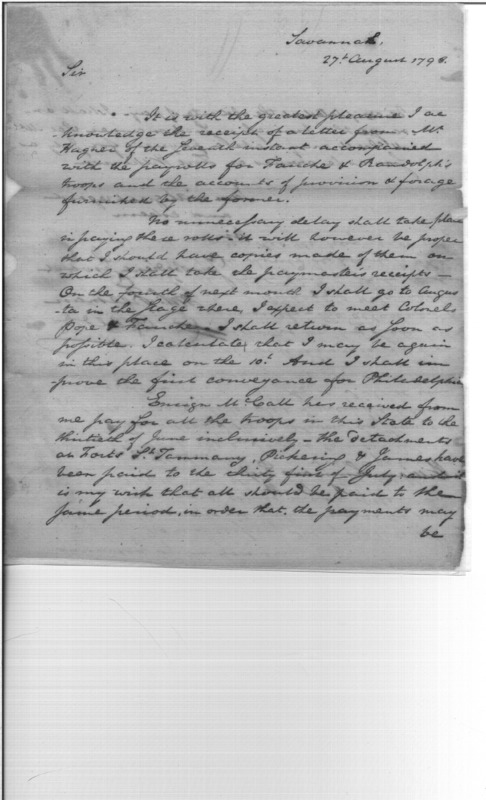 Savannah,
27th August 1796.
Sir
It is with the greatest pleasure I ac
knowledge the receipt of a letter from Mr
Hagner of the seventh instant accompanied
with the payrolls for Fauche & Randolph's
troops and the accounts of provision & forage
furnished by the former.
No unnecessary delay shall take place
in paying these rolls. it will however be proper
that I should have copies made of them on
which I shall take the paymasters receipts —
On the fourth of next month I shall go to Augus
-ta in the stage where I expect to meet Colonels
Pope & Fauche. I shall return as soon as
possible. I calculate that I may be again
in this place on the 10th And I shall im
-prove the first conveyance for Philadelphia
Ensign McCall has received from
me pay for all the troops in this State to the
thirtieth of June inclusively — the detachments
at Forts St. Tammany, Pickering & James have
been paid to the thirty first of July and it
is my wish that all should be paid to the
same period, in order that the payments may
be